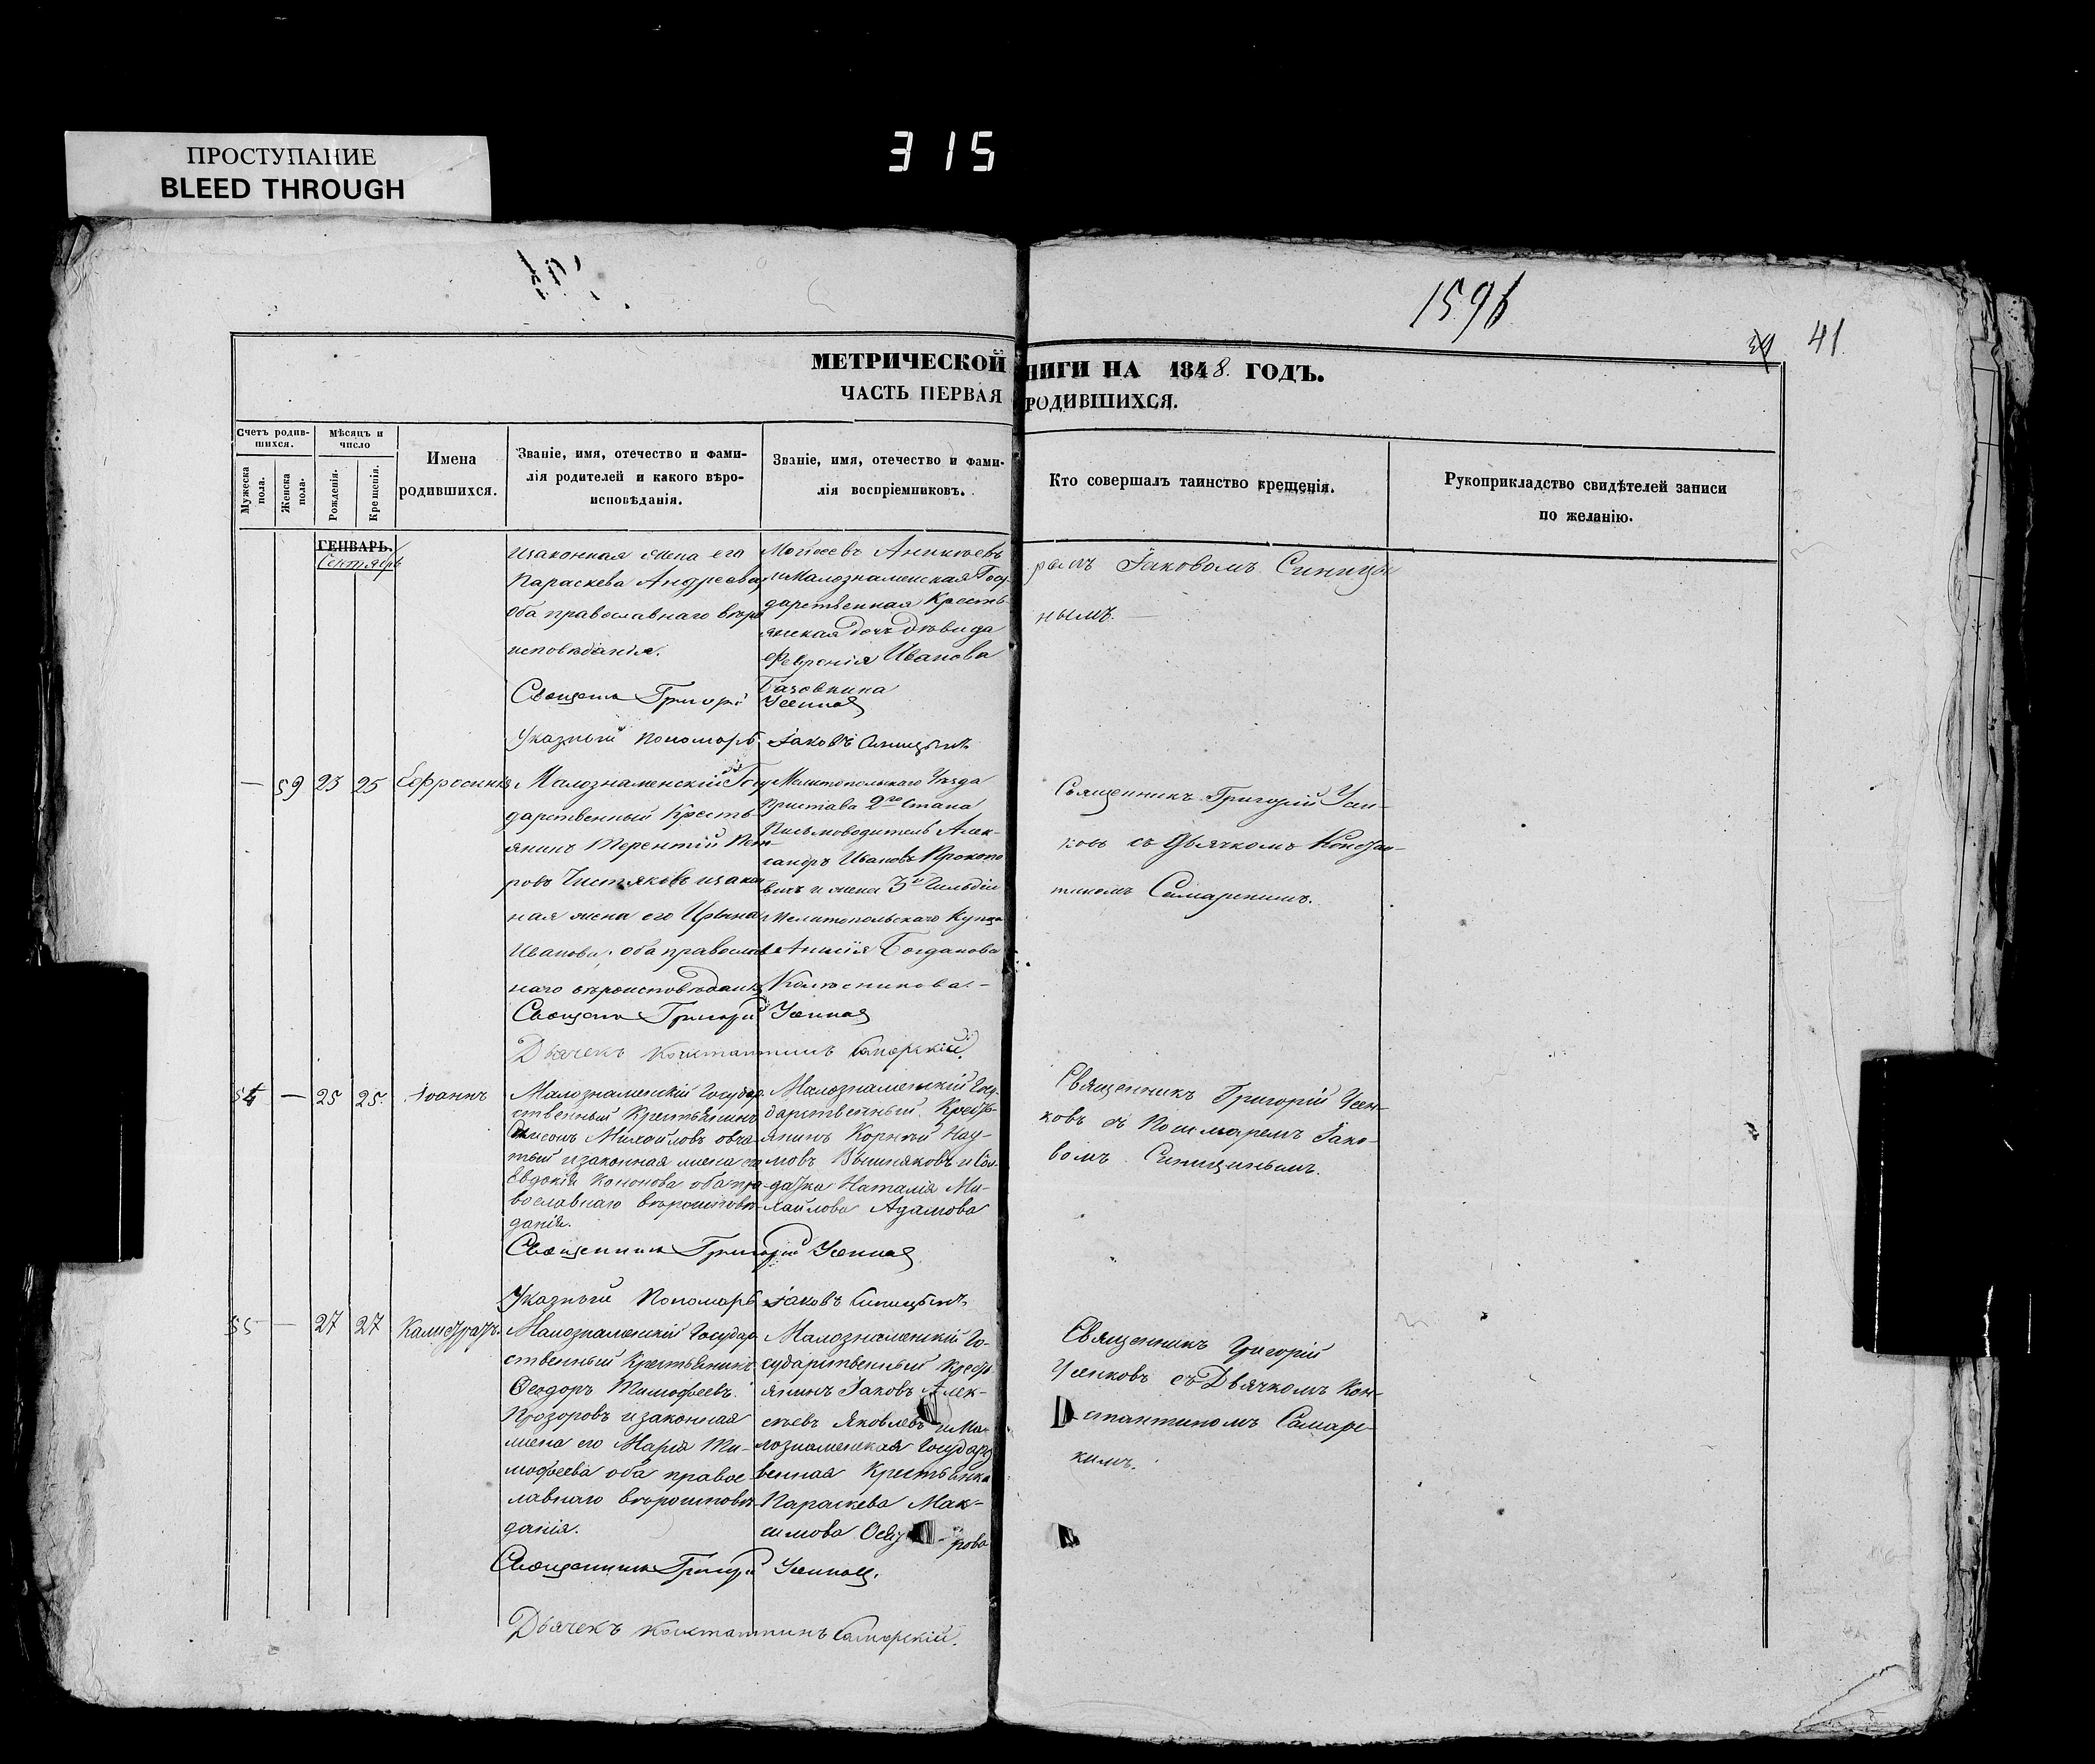 ПРОСТУПАНИЕ
BLEED THROUGH
315
1596
39 41
МЕТРИЧЕСКОЙ НИГИ НА 1848. ГОДЪ.
ЧАСТЬ ПЕРВАЯ РОДИВШИХСЯ.
Счетъ родив-
шихся.
Мужеска пола.
Женска пола.
Мѣсяцъ и
число
Рожденія.
Крещенія.
Имена
родившихся.
Званіе, имя, отечество и фами-
лія родителей и какого вѣро-
исповѣданія.
Званіе, имя, отечество и фами-
лія воспріемниковъ.
Кто совершалъ таинство крещенія.
Рукоприкладство свидѣтелей записи
по желанію.
ГЕНВАРЬ.
Сентябрь
изаконная жена его
Параскева Андреева,
оба православнаго вѣро
исповѣданія.
Моѵсеевъ Аникіевъ
и Малознаменская Госу-
дарственная Кресть-
янская дочь дѣвица
Февронія Иванова
ромъ Іаковомъ Синицы
нымъ. —
Священ Григорі Усенков
Указный Пономарь Іаковъ Синицынъ
— 59 23 25 Евфросинія
Малознаменскій Госу
дарственный Кресть-
янинъ Терентій Пет-
ровъ Чистяковъ изакон
ная жена его Ирина
Иванова, оба правосла
наго вѣроисповѣдан
Мелитопольскаго Уѣзда
Пристава 2го Стана
Письмоводитель Алек-
сандръ Ивановъ Прокопо
вичъ и жена 3й Гильдіи
Мелитопольскаго Купца
Анисія Богданова
Колесникова. —
Священникъ Григорій Усен-
ковъ съ Дьячкомъ Констан-
тиномъ Самарскимъ.
Священ Григорій Усенков
Дьячекъ Константинъ Самарскій.
54 — 25 25. Іоаннъ
Малознаменскій Государ-
ственный Крестьянинъ
Михайловъ овча-
тый изаконная жена ег
Евдокія Кононова оба пра-
вославнаго вѣроисповѣ-
данія.
Малознаменскій Госу-
дарственный Кресть-
янинъ Корнѣй Нау-
мовъ Вышняковъ и Сол-
датка Наталія Ми-
хайлова Адамова
Священникъ Григорій Усен-
ковъ съ Пономаремъ Іако-
вомъ Синицинымъ.
Священникъ Григорій Усенков
Указный Пономарь Іаковъ Синицынъ
55 — 27 27 Калистратъ.
Малознаменскій Государ-
ственный Крестьянинъ
Ѳеодоръ Тимофеевъ
Прозоровъ изаконная
жена его Марія Ти-
мофеева оба правос-
лавнаго вѣроисповѣ-
данія.
Малознаменскій Го-
сударственный Кресть
янинъ Іаковъ Алек-
сѣевъ Яковлевъ и Ма-
лознаменская Государст
венная Крестьянка
Параскева Мак-
симова
Священникъ Григорій
Усенковъ съ Дьячкомъ Кон-
стантиномъ Самарс-
кимъ.
Священникъ Григорій Усенков.
Дьячекъ Константинъ Самарскій.